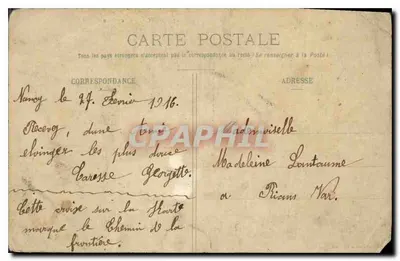 CARTE POSTALE
Tous les pays étrangers n'acceptent pas la correspondance au recto. (Se renseigner à la Poste)
CORRESPONDANCE
ADRESSE
Nancy le 27 Fevrie 1916.
Recevez, dune
eloinger les plus douce
Caresse Georgette
Cette croise sur la Karte
marque le Chemin de la
frontière.
Mademoiselle
Madeleine Lantaume
a Rians Var.
CPAPHIL.COM